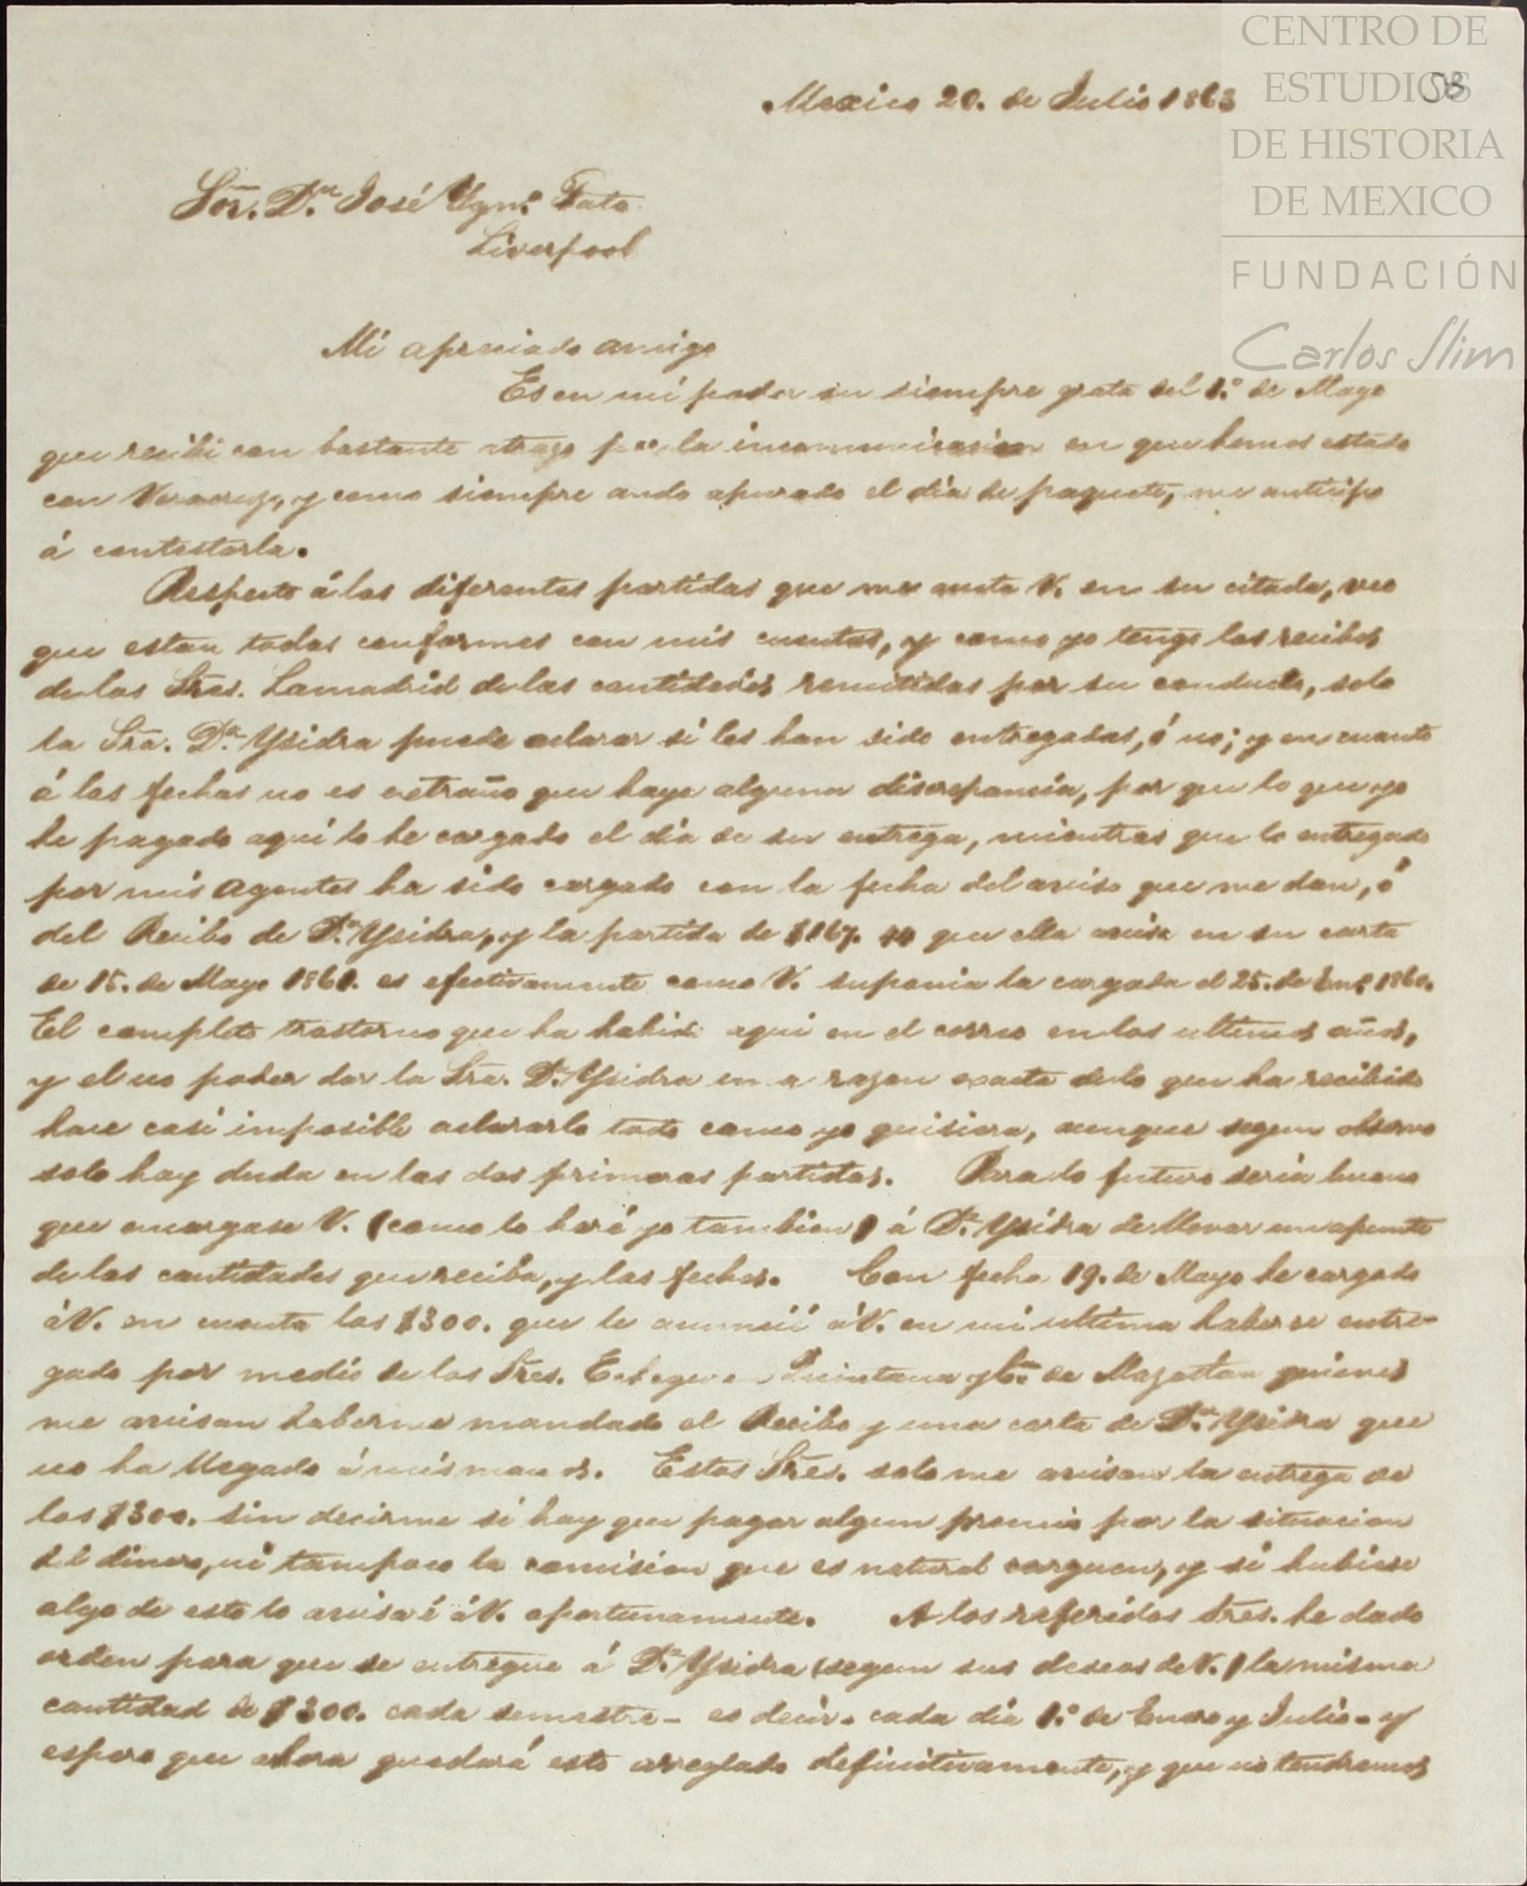 CENTRO DE
ESTUDIOS
DE HISTORIA
DE MEXICO
FUNDACIÓN
Carlos Slim
58
Mexico 20. de Julio 1863
Sor. Dn. José Ygno. 
Liverpool
Mi apreciado amigo
Es en mi poder su siempre grata del 1.º de Mayo
que recibi con bastante atrazo por la incomunicacion en que hemos estado
con Veracruz, y como siempre ando apurado el dia de paquete, me anticipo
á contestarla.
Respecto á las diferentes partidas que me anota V. en su citada, veo
que estan todas conformes con mis cuentas, y como yo tengo los recibos
de los Sres. Lamadrid de las cantidades remitidas por su conducto, solo
la Sra. Da. Ysidra puede aclarar si les han sido entregadas, ó no; y en cuanto
á las fechas no es extraño que haya alguna discrepancia, por que lo que yo
he pagado aqui lo he cargado el dia de su entrega, mientras que lo entregado
por mis Agentes ha sido cargado con la fecha del aviso que me dan, ó
del Recibo de Da. Ysidra, y la partida de $167. que ella avisa en su carta
de 15. de Mayo 1861. es efectivamente como V. suponia la cargada el 25. de Eno. 1860.
El completo trastorno que ha habido aqui en el correo en los ultimos años,
y el no poder dar la Sra. Da. Ysidra una razon exacta de lo que ha recibido
hace casi imposible aclararlo todo como yo quisiera, aunque segun observo
solo hay duda en las dos primeras partidas. Para lo futuro seria bueno
que encargase V. (como lo haré yo tambien) á Da. Ysidra de llevar un apunte
de las cantidades que reciba, y las fechas. Con fecha 19. de Mayo he cargado
á V. en cuenta los $300. que le anuncié á V. en mi ultima haberse entre-
gado por medio de los Sres. Echeguren Quintana y Ca. de Mazatlan quienes
me avisan haberme mandado el Recibo y una carta de Da. Ysidra que
no ha llegado á mis manos. Estos Sres. solo me avisan la entrega de
los $300. sin decirme si hay que pagar algun premio por la situacion
del dinero, ni tampoco la comision que es natural carguen, y si hubiese
algo de esto lo avisaré á V. oportunamente. A los referidos Sres. he dado
orden para que se entregue á Da. Ysidra (segun sus deseos de V.) la misma
cantidad de $300. cada semestre - es decir. cada dia 1.º de Enero y Julio - y
espero que ahora quedará esto arreglado definitivamente, y que no tendremos